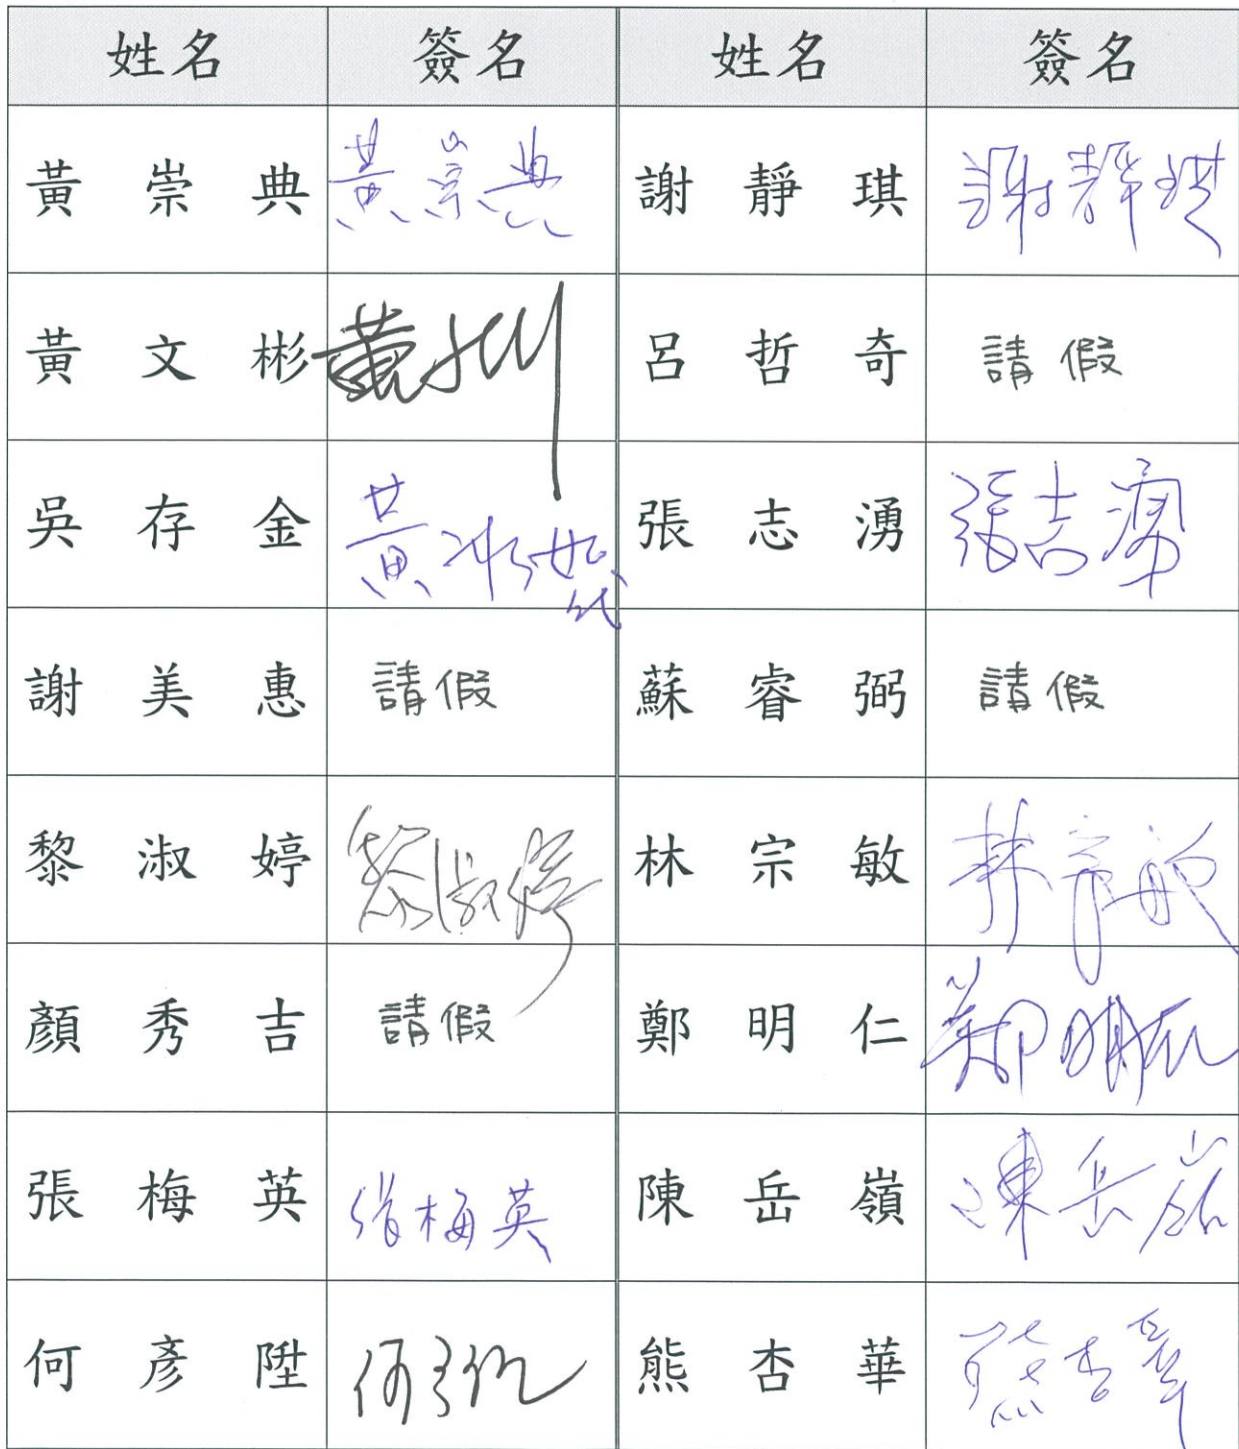 姓名 簽名 姓名 簽名
黃崇典 黃崇典 謝靜琪 謝靜琪
黃文彬 黃 呂哲奇 請假
吳存金 黃冰如代 張志湧 張志湧
謝美惠 請假 蘇睿弼 請假
黎淑婷 黎淑婷 林宗敏 林宗敏
顏秀吉 請假 鄭明仁 鄭明仁
張梅英 張梅英 陳岳嶺 陳岳嶺
何彥陞 何彥陞 熊杏華 熊杏華